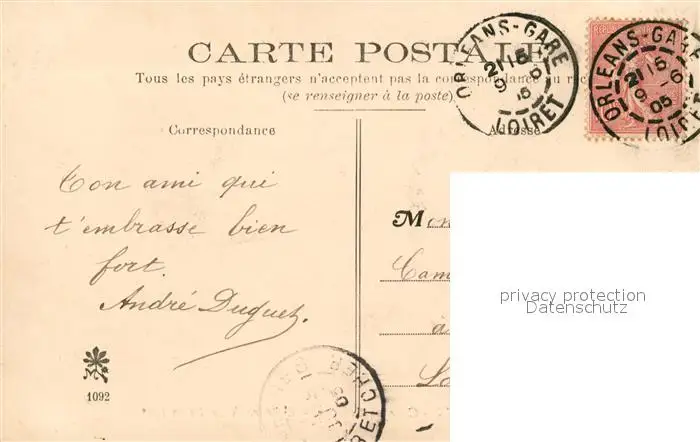 CARTE POSTALE
Tous les pays étrangers n'acceptent pas la correspondance au rec
(se renseigner à la poste)
ORLEANS-GARE
21 15
9 - 6
05
LOIRET
ORLEANS-GARE
21 15
9 - 6
05
LOIRET
Correspondance
Adresse
Ton ami qui
t'embrasse bien
fort.
André Duguet.
M
Cam
à
privacy protection
Datenschutz
ET CHER
1092